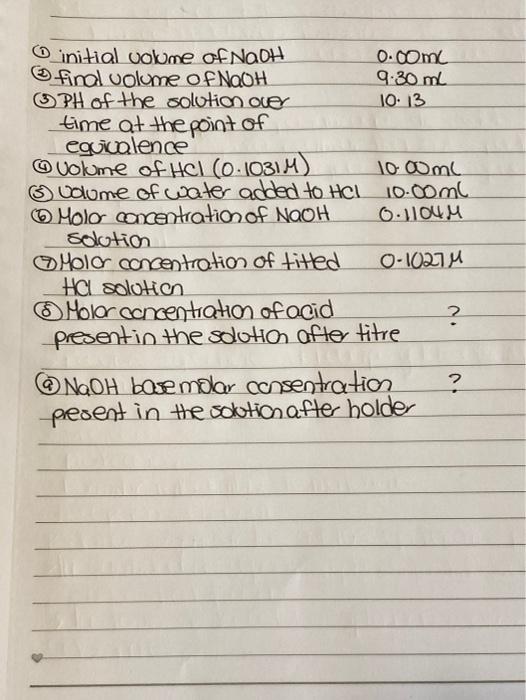 ① initial volume of NaOH 0.00mL
② final volume of NaOH 9.30 mL
③ PH of the solution over 10.13
time at the point of
equivalence
④ Volume of HCl (0.1031M) 10.00mL
⑤ Volume of water added to HCl 10.00mL
⑥ Molar concentration of NaOH 0.1104M
solution
⑦ Molar concentration of titted 0.1027M
HCl solution
⑧ Molar concentration of acid ?
present in the solution after titre
⑨ NaOH base molar consentration ?
present in the solution after holder